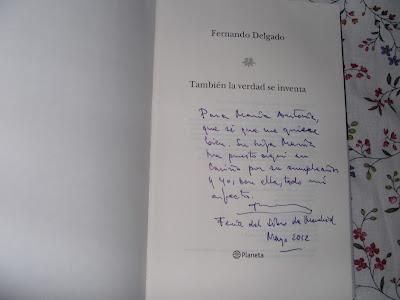 Fernando Delgado
También la verdad se inventa
Para María Antonia,
que sé que me quiere
bien. Su hija María
ha puesto aquí su
cariño por su cumpleaños
y yo, con ella, todo mi
afecto.
Feria del Libro de Madrid
Mayo 2012
Planeta